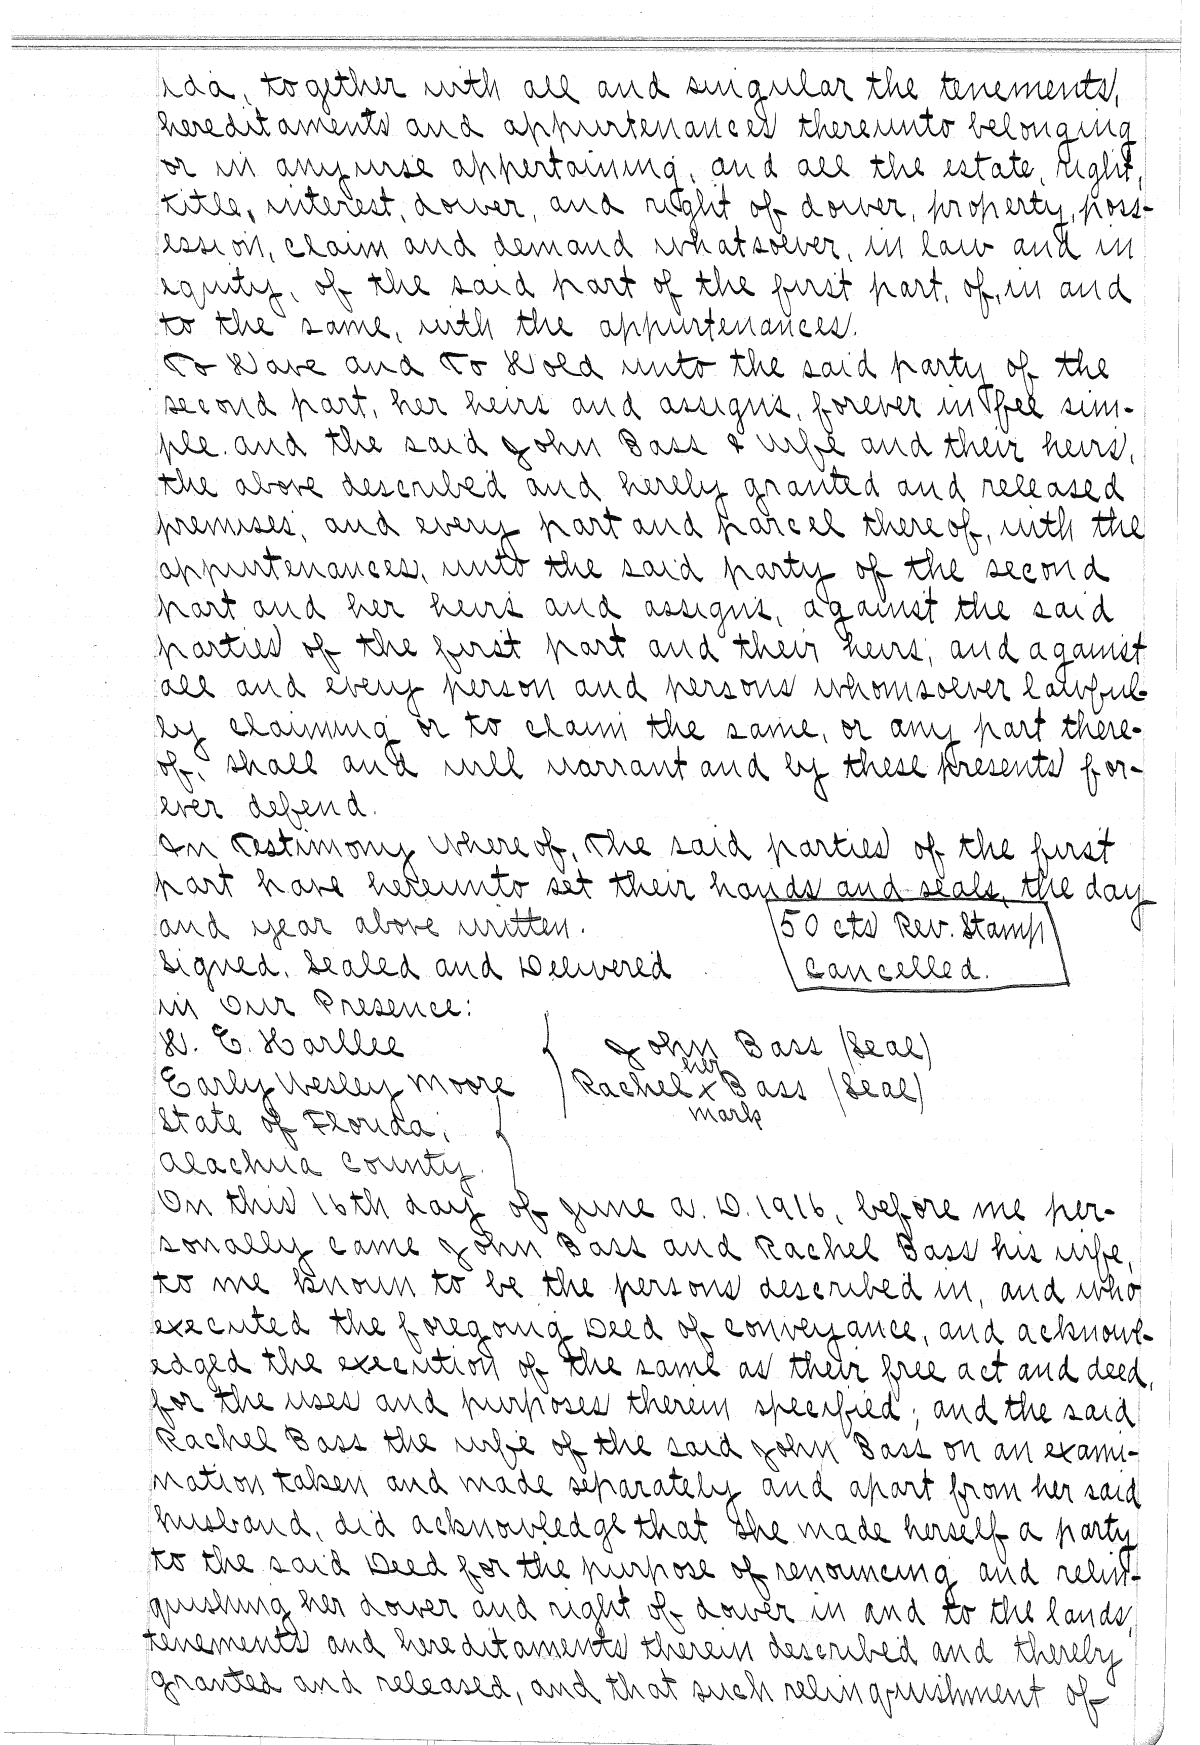 ida, together with all and singular the tenements,
hereditaments and appurtenances thereunto belonging
or in anywise appertaining, and all the estate, right,
title, interest, dower, and right of dower, property, poss-
ession, claim and demand whatsoever, in law and in
equity, of the said part of the first part, of, in and
to the same, with the appurtenances.
To Have and To Hold unto the said party of the
second part, her heirs and assigns, forever in fee sim-
ple. and the said John Bass & wife and their heirs,
the above described and hereby granted and released
premises, and every part and parcel thereof, with the
appurtenances, unto the said party of the second
part and her heirs and assigns, against the said
parties of the first part and their heirs, and against
all and every person and persons whomsoever lawful-
ly claiming or to claim the same, or any part there-
of, shall and will warrant and by these presents for-
ever defend.
In Testimony Whereof, The said parties of the first
part have hereunto set their hands and seals, the day
and year above written.
50 cts Rev. Stamp
Cancelled.
Signed, Sealed and Delivered
in Our Presence:
H. E. Harllee
John Bass (Seal)
Early Wesley Moore
her
Rachel x Bass (Seal)
mark
State of Florida,
Alachua County.
On this 16th day of June A. D. 1916, before me per-
sonally came John Bass and Rachel Bass his wife,
to me known to be the persons described in, and who
executed the foregoing Deed of conveyance, and acknowl-
edged the execution of the same as their free act and deed,
for the uses and purposes therein specified; and the said
Rachel Bass the wife of the said John Bass on an exami-
nation taken and made separately and apart from her said
husband, did acknowledge that she made herself a party
to the said Deed for the purpose of renouncing and relin-
quishing her dower and right of dower in and to the lands,
tenements and hereditaments therein described and thereby
granted and released, and that such relinquishment of